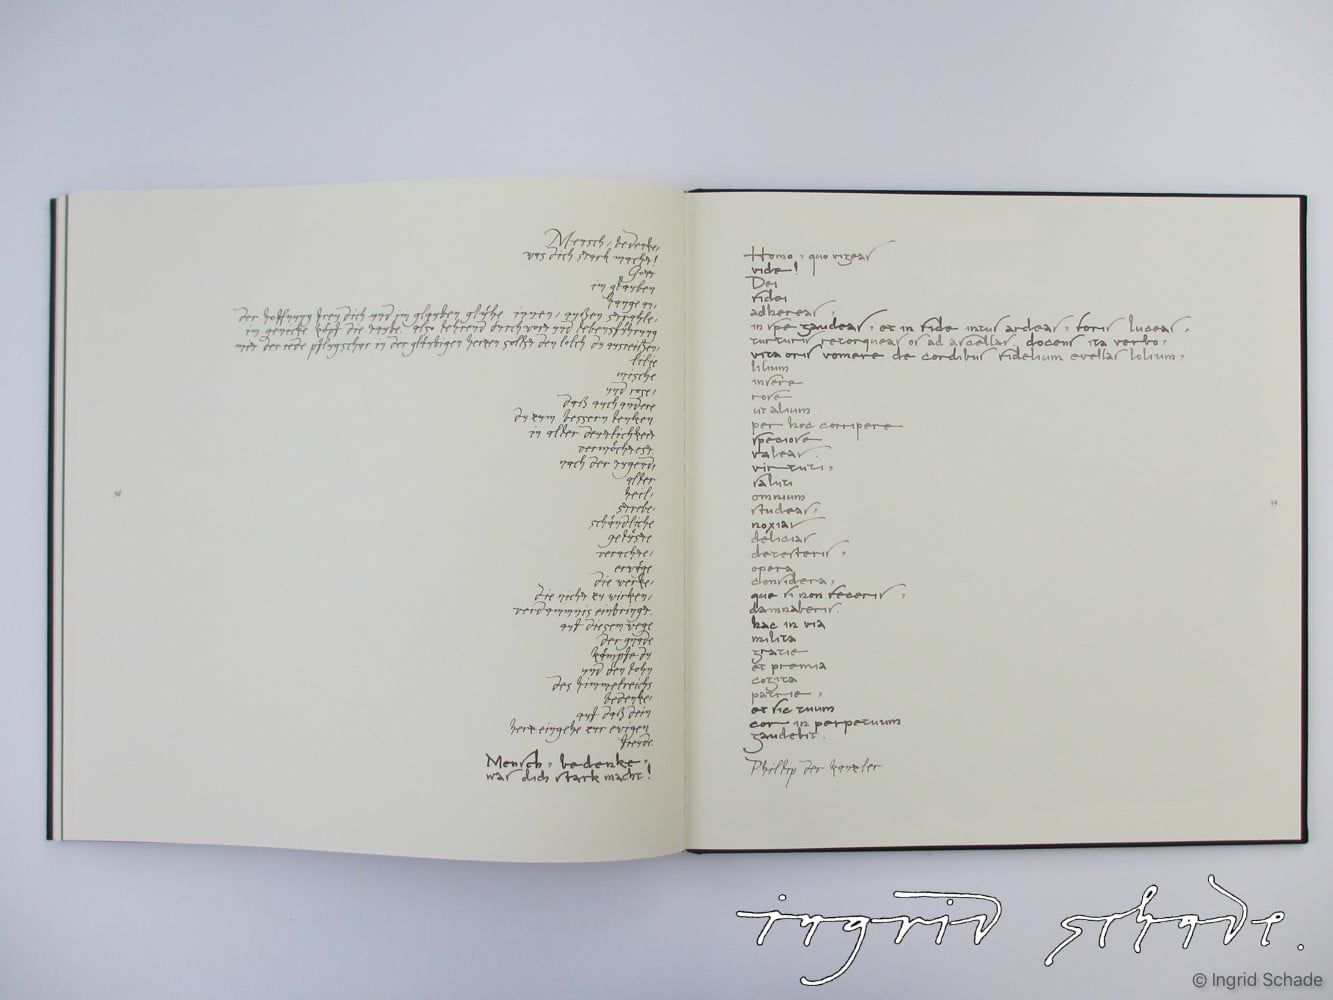 Mensch, bedenke,
was dich stark macht!
Gott
im glauben
hange an,
der hoffnung freu dich und im glauben glühe innen, außen strahle,
im genicke die taube. also lehrend durch wort und lebensführung
mit der rede pflugschar in der gläubigen herzen sollst den lolch du ausreißen,
lilie
mische
und rose,
daß auch andere
du zum bessern lenken
in aller deutlichkeit
vermöchtest
nach der tugend,
aller
heil,
strebe,
schändliche
gelüste
verachte,
erwäge
die werke,
die nicht zu wirken,
verdammnis einbringt.
auf diesem wege
der gnade
kämpfe du
und den lohn
des himmelreichs
bedenke,
auf daß dein
herz eingehe zur ewigen
freude
Mensch, bedenke,
was dich stark macht!
98
Homo, quo vigeas
vide!
Dei
fidei
adhereas,
in spe gaudeas, et in fide intus ardeas, foris luceas,
turturis retorqueas os ad ascellas. docens ita verbo,
vita oris vomere de cordibus fidelium evellas lolium,
lilium
insere
rose
ut alium
per hoc corripere
speciose
valeas.
virtuti,
saluti
omnium
studeas,
noxias
delicias
detesteris,
opera
considera,
que si non feceris,
damnaberis.
hac in via
milita
gratie
et premia
cogita
patrie,
et sic tuum
cor in perpetuum
gaudebit.
Philipp der kanzler
99
ingrid schade.
© Ingrid Schade